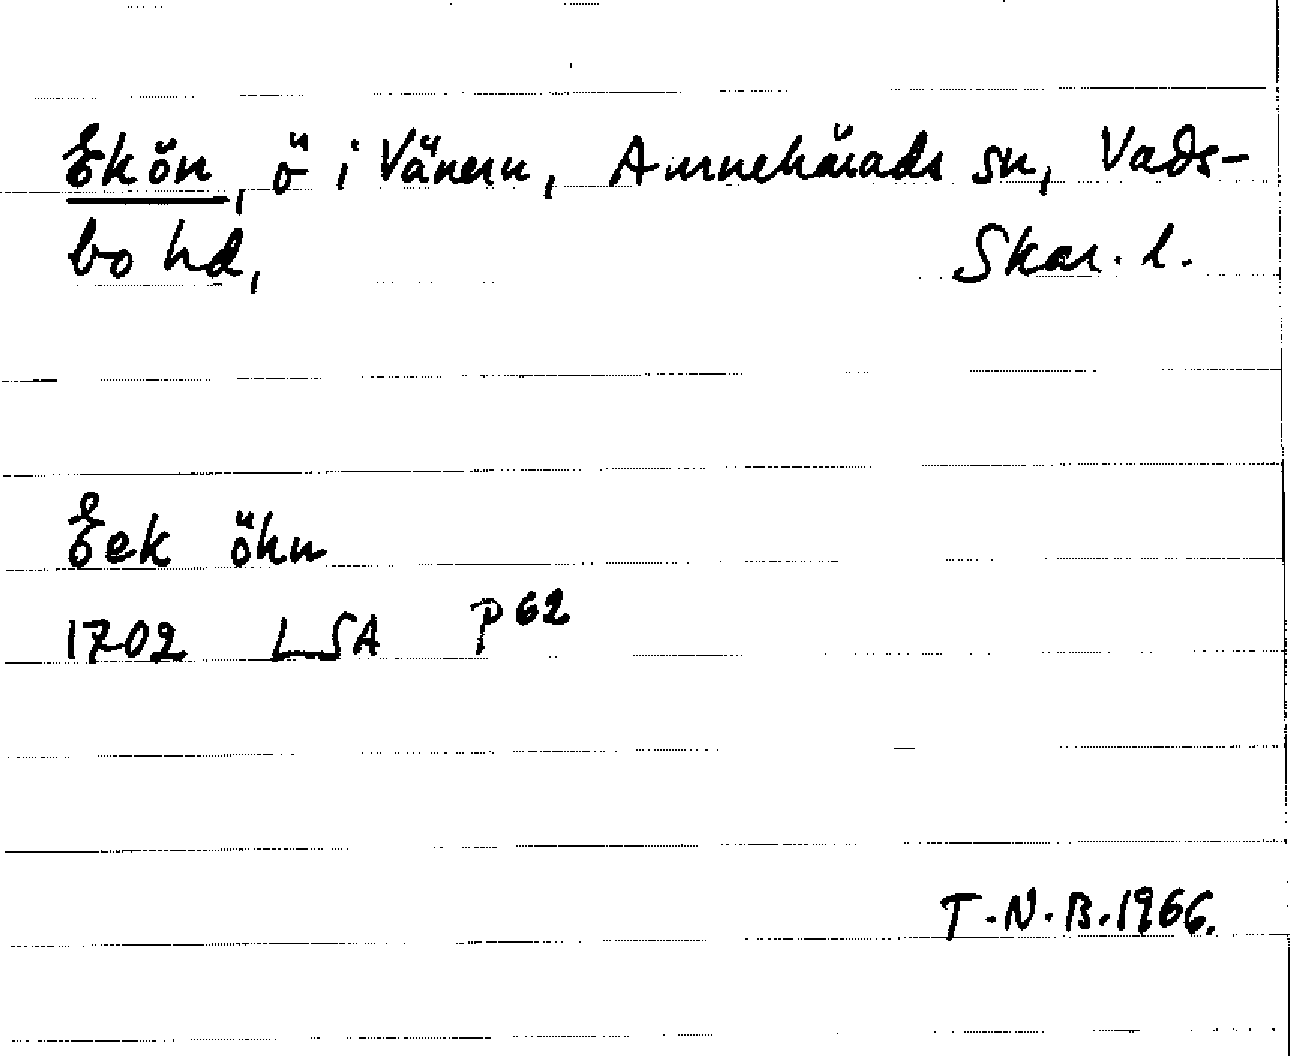 Ekön, ö i Vänern, Amnehärads sn, Vads-
bo hd, Skar. l.
Eek öhn
1702 LSA P 62
T.N.B. 1966.